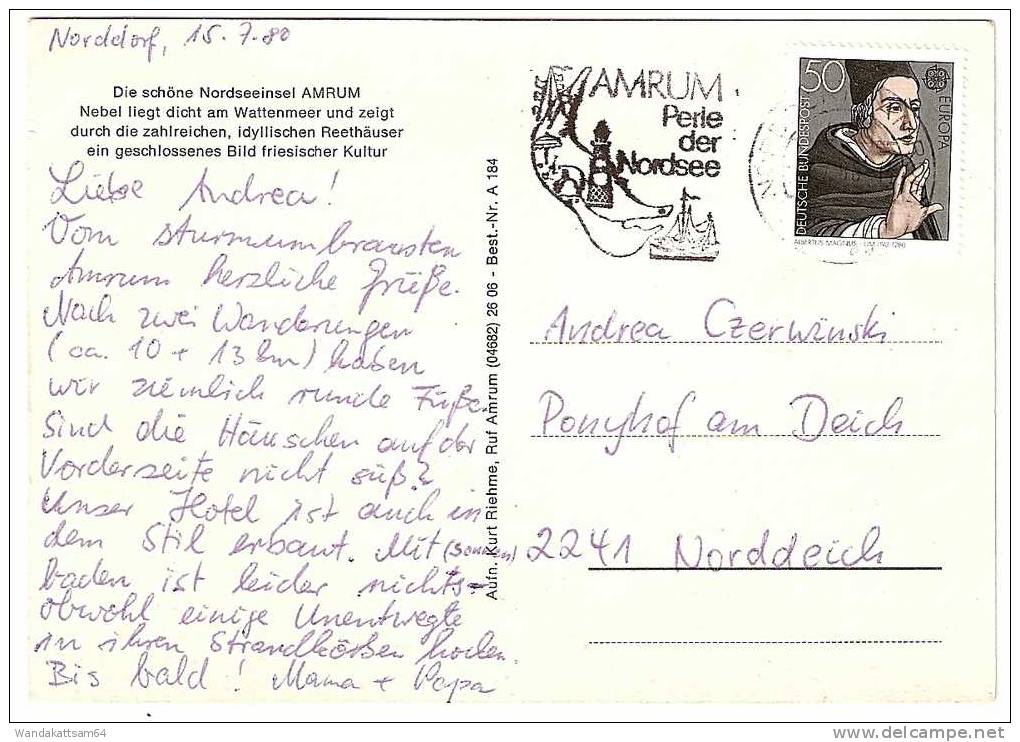 Norddorf, 15.7.80
Die schöne Nordseeinsel AMRUM
Nebel liegt dicht am Wattenmeer und zeigt
durch die zahlreichen, idyllischen Reethäuser
ein geschlossenes Bild friesischer Kultur
Liebe Andrea!
Vom sturmumbrausten
Amrum herzliche Grüße.
Nach zwei Wanderungen
(ca. 10 + 13 km) haben
wir ziemlich runde Füße.
Sind die Häuschen auf der
Vorderseite nicht süß?
Unser Hotel ist auch in
dem Stil erbaut. Mit (Sonnen)
baden ist leider nichts-
obwohl einige Unentwegte
in ihren Strandkörben hocken.
Bis bald! Mama + Papa
Aufn. Kurt Riehme, Ruf Amrum (04682) 26 06 - Best.-Nr. A 184
AMRUM
Perle
der
Nordsee
50
EUROPA
DEUTSCHE BUNDESPOST
ALBERTUS MAGNUS
Andrea Czerwinski
Ponyhof am Deich
2241 Norddeich
Wandakattsam64
delcampe.net